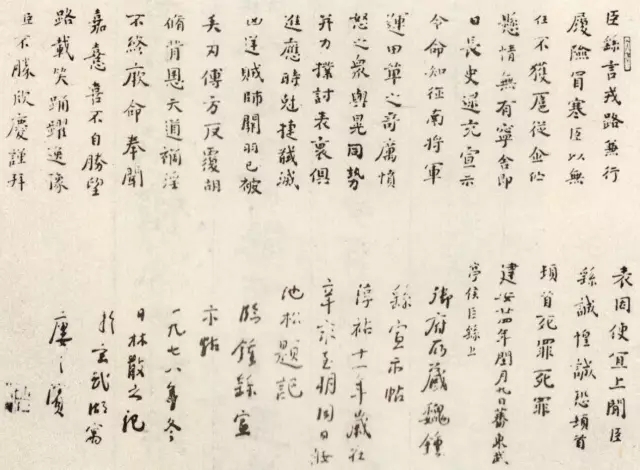 臣繇言戎路兼行
履險冒寒臣以無
任不獲扈從企佇
懸情無有寧舍即
日長史逯充宣示
令命知征南將軍
運田單之奇厲憤
怒之衆與晃同勢
并力撲討表裏俱
進應時剋捷馘滅
凶逆賊帥關羽已被
矢刃傅方反覆胡
脩背恩天道禍淫
不終厥命奉聞
嘉憙喜不自勝望
路載笑踊躍逸豫
臣不勝欣慶謹拜
表因便宜上聞臣
繇誠惶誠恐頓首
頓首死罪死罪
建安廿四年閏月九日蕃東武
亭侯臣繇上
御府所藏魏鍾
繇宣示帖
淳祐十一年歲在
辛亥至明日
池松題記
臨鍾繇宣
示帖
一九七八年冬
日林散之記
於玄武湖寓